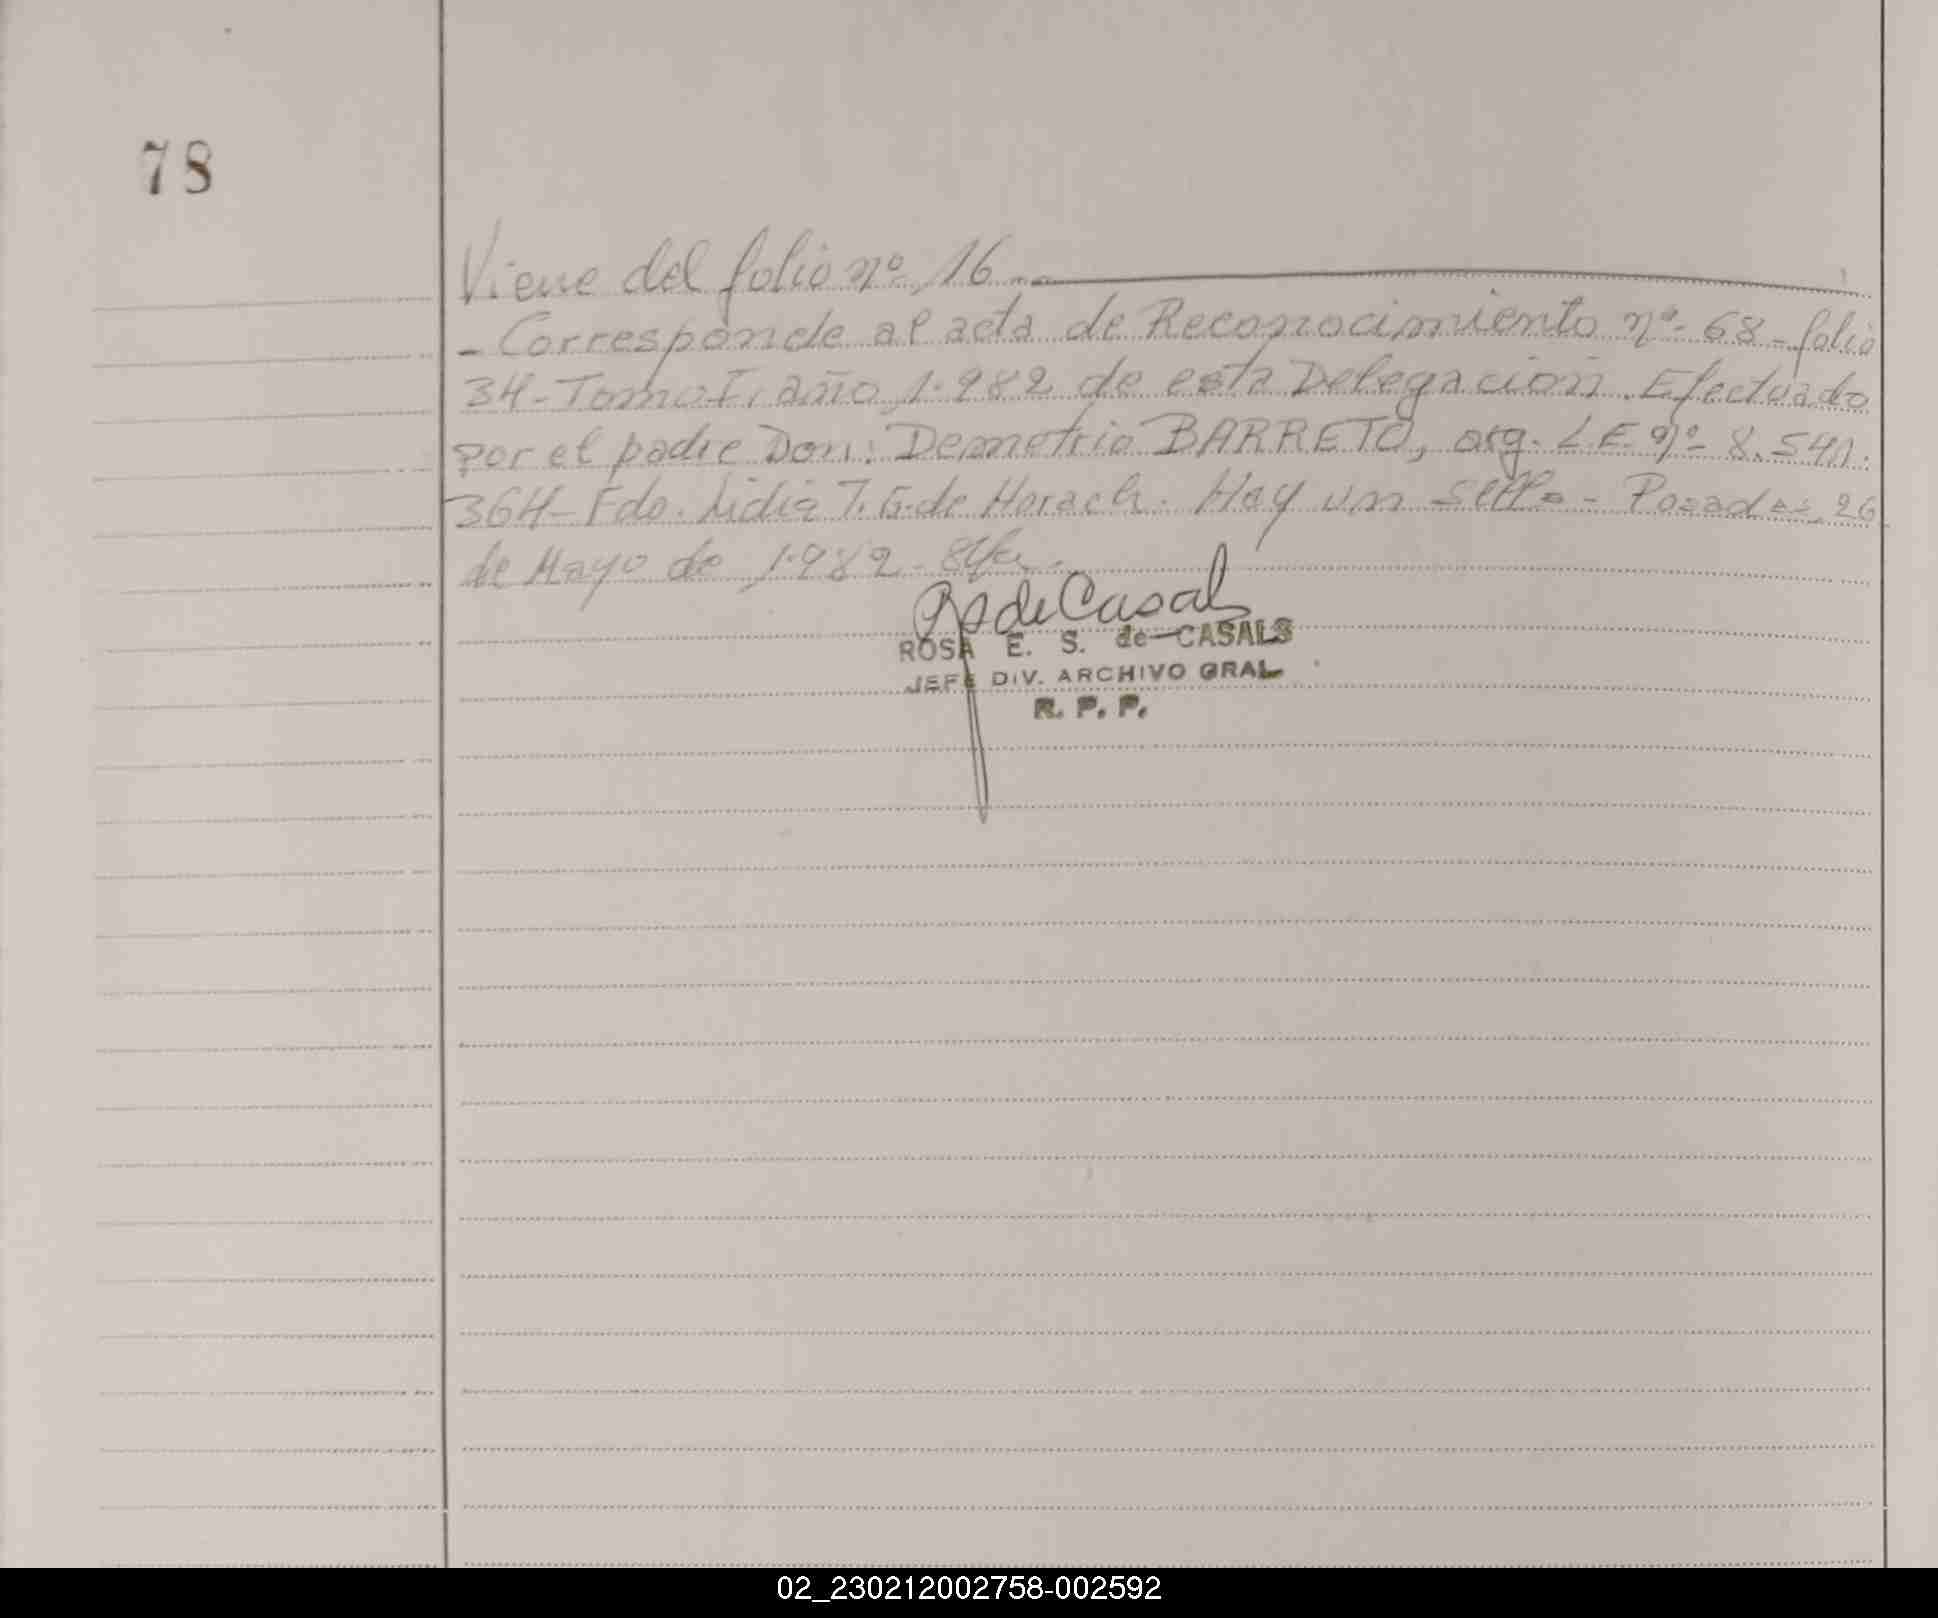 78
Viene del folio nº 16 -
- Corresponde al acta de Reconocimiento nº 68 - folio
34 - Tomo I, año 1.982 de esta Delegación. Efectuado
por el padre Don: Demetrio BARRETO, arg. L.E. nº 8.541.
364 - Fdo. Lidia T. G. de Horach. Hay un sello - Posadas, 26
de Mayo de 1.982 -
RS de Casals
ROSA E. S. de CASALS
JEFE DIV. ARCHIVO GRAL
R. P. P.
02_230212002758-002592